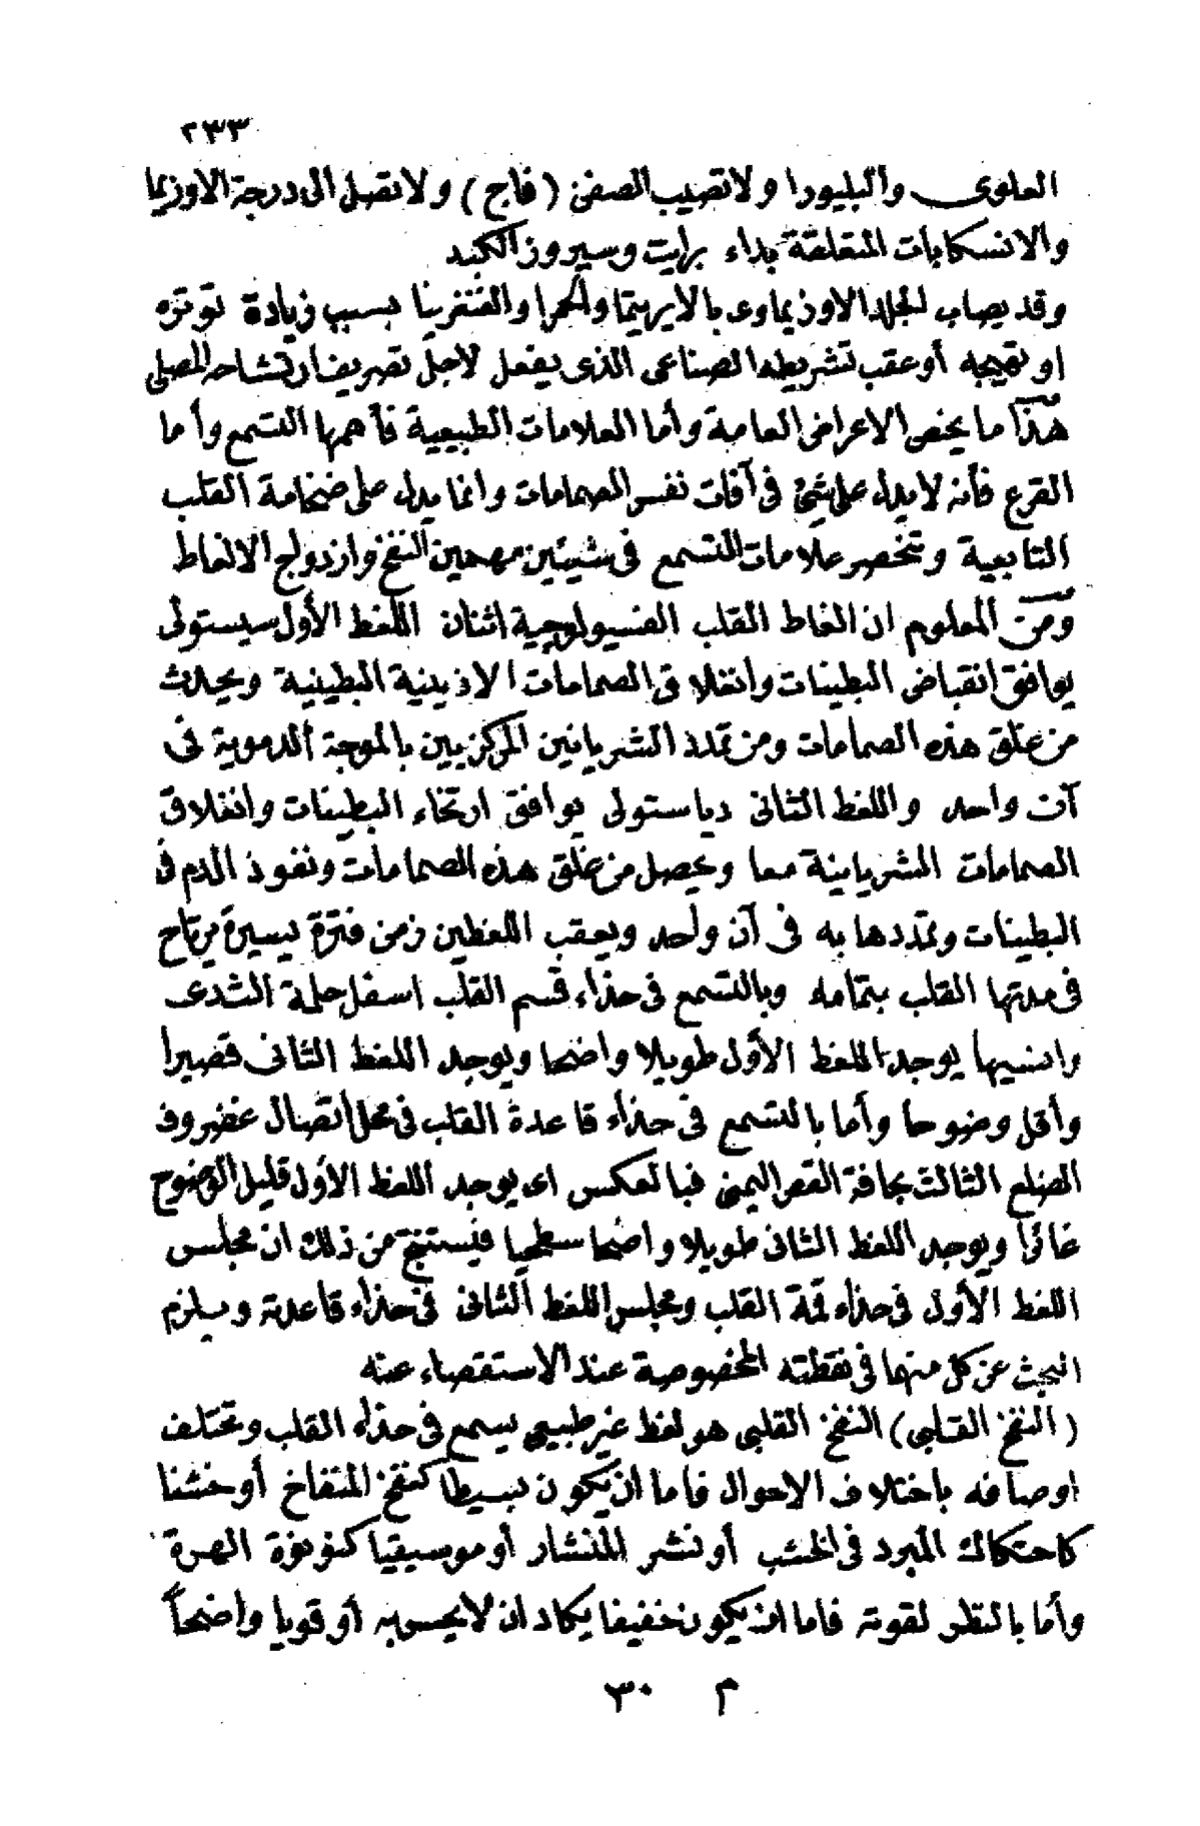 ٢٣٣
العلوى والبليورا ولا تصيب الصفن (فاج) ولا تصل الى درجة الاوزيما
والانسكابات المتعلقة بداء برايت وسيروز الكبد
وقد يصاب الجلد الاوزيماوى بالايريتما والحمرا والغنغرينا بسبب زيادة توتره
او تهيجه أو عقب تشريطه الصناعى الذى يفعل لاجل تصريف ارتشاحه المصلى
هذا ما يخص الاعراض العامة وأما العلامات الطبيعية فأهمها التسمع وأما
القرع فأنه لا يدل على شئ فى آفات نفس الصمامات وانما يدل على ضخامة القلب
التابعية وتنحصر علامات التسمع فى شيئين مهمين النفخ وازدواج الالغاط
ومن المعلوم ان الغاط القلب الفسيولوجية اثنان اللغط الأول سيستولى
يوافق انقباض البطينات وانغلاق الصمامات الاذينية البطينية ويحدث
من غلق هذه الصمامات ومن تمدد الشريانين المركزيين بالموجة الدموية فى
آن واحد واللغط الثانى دياستولى يوافق ارتخاء البطينات وانغلاق
الصمامات الشريانية معا ويحصل من غلق هذه الصمامات ونفوذ الدم فى
البطينات وتمددها به فى آن واحد ويعقب اللغطين زمن فترة يسيرة يرتاح
فى مدتها القلب بتمامه وبالتسمع فى حذاء قسم القلب اسفل حلمة الثدى
وانسيها يوجد اللغط الأول طويلا واضحا ويوجد اللغط الثانى قصيرا
وأقل وضوحا وأما بالتسمع فى حذاء قاعدة القلب فى محل اتصال غضروف
الضلع الثالث بحافة القص اليمنى فبالعكس اى يوجد اللغط الأول قليل الوضوح
غائرا ويوجد اللغط الثانى طويلا واضحا سطحيا فيستنتج من ذلك ان مجلس
اللغط الأول فى حذاء قمة القلب ومجلس اللغط الثانى فى حذاء قاعدته ويلزم
البحث عن كل منهما فى نقطته المخصوصة عند الاستقصاء عنه
(النفخ القلبى) النفخ القلبى هو لغط غير طبيعى يسمع فى حذاء القلب وتختلف
اوصافه باختلاف الاحوال فاما ان يكون بسيطا كنفخ المنفاخ أو خشنا
كاحتكاك المبرد فى الخشب أو نشر المنشار أو موسيقيا كنونوة الهرة
وأما بالنظر لقوته فاما ان يكون خفيفا يكاد ان لا يحس به أو قويا واضحاً
م ٣٠